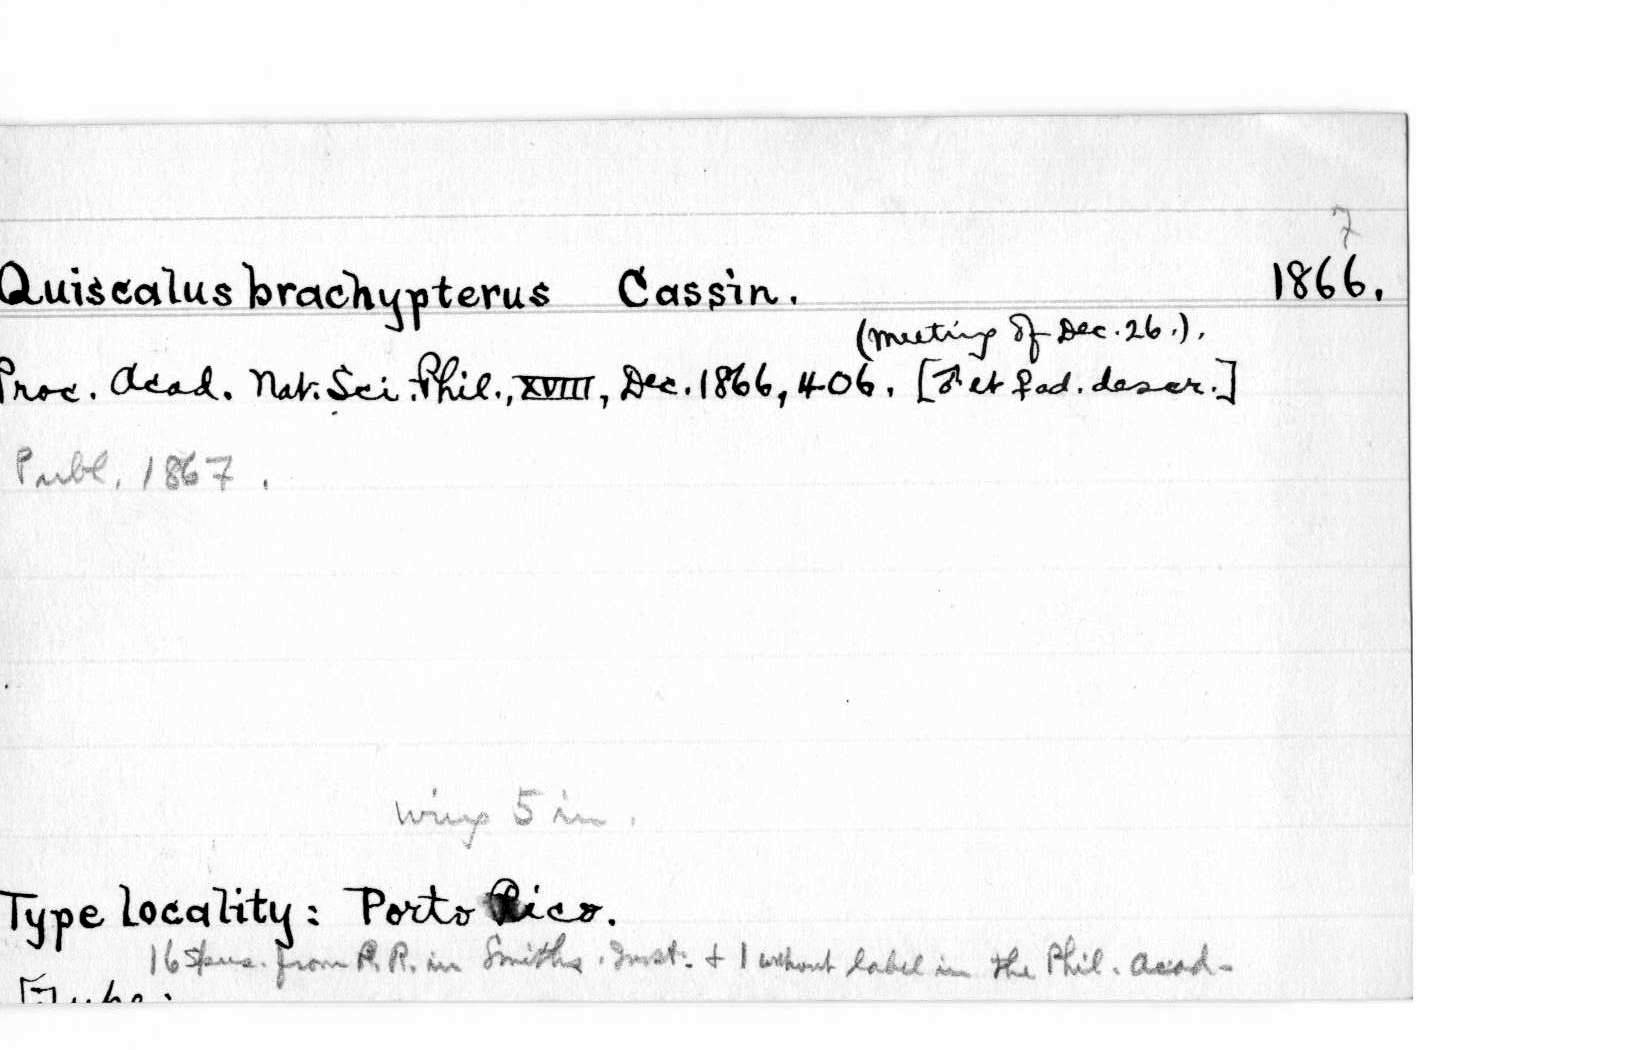 7
Quiscalus brachypterus Cassin. 1866.
(meeting of Dec. 26.).
Proc. Acad. Nat. Sci. Phil., XVIII, Dec. 1866, 406. [♂ et ♀ ad. descr.]
Publ. 1867.
Wing 5 in.
Type locality: Porto Rico.
16 from P. R. in Smiths. Inst. + 1 without label in the Phil. Acad.
Type: